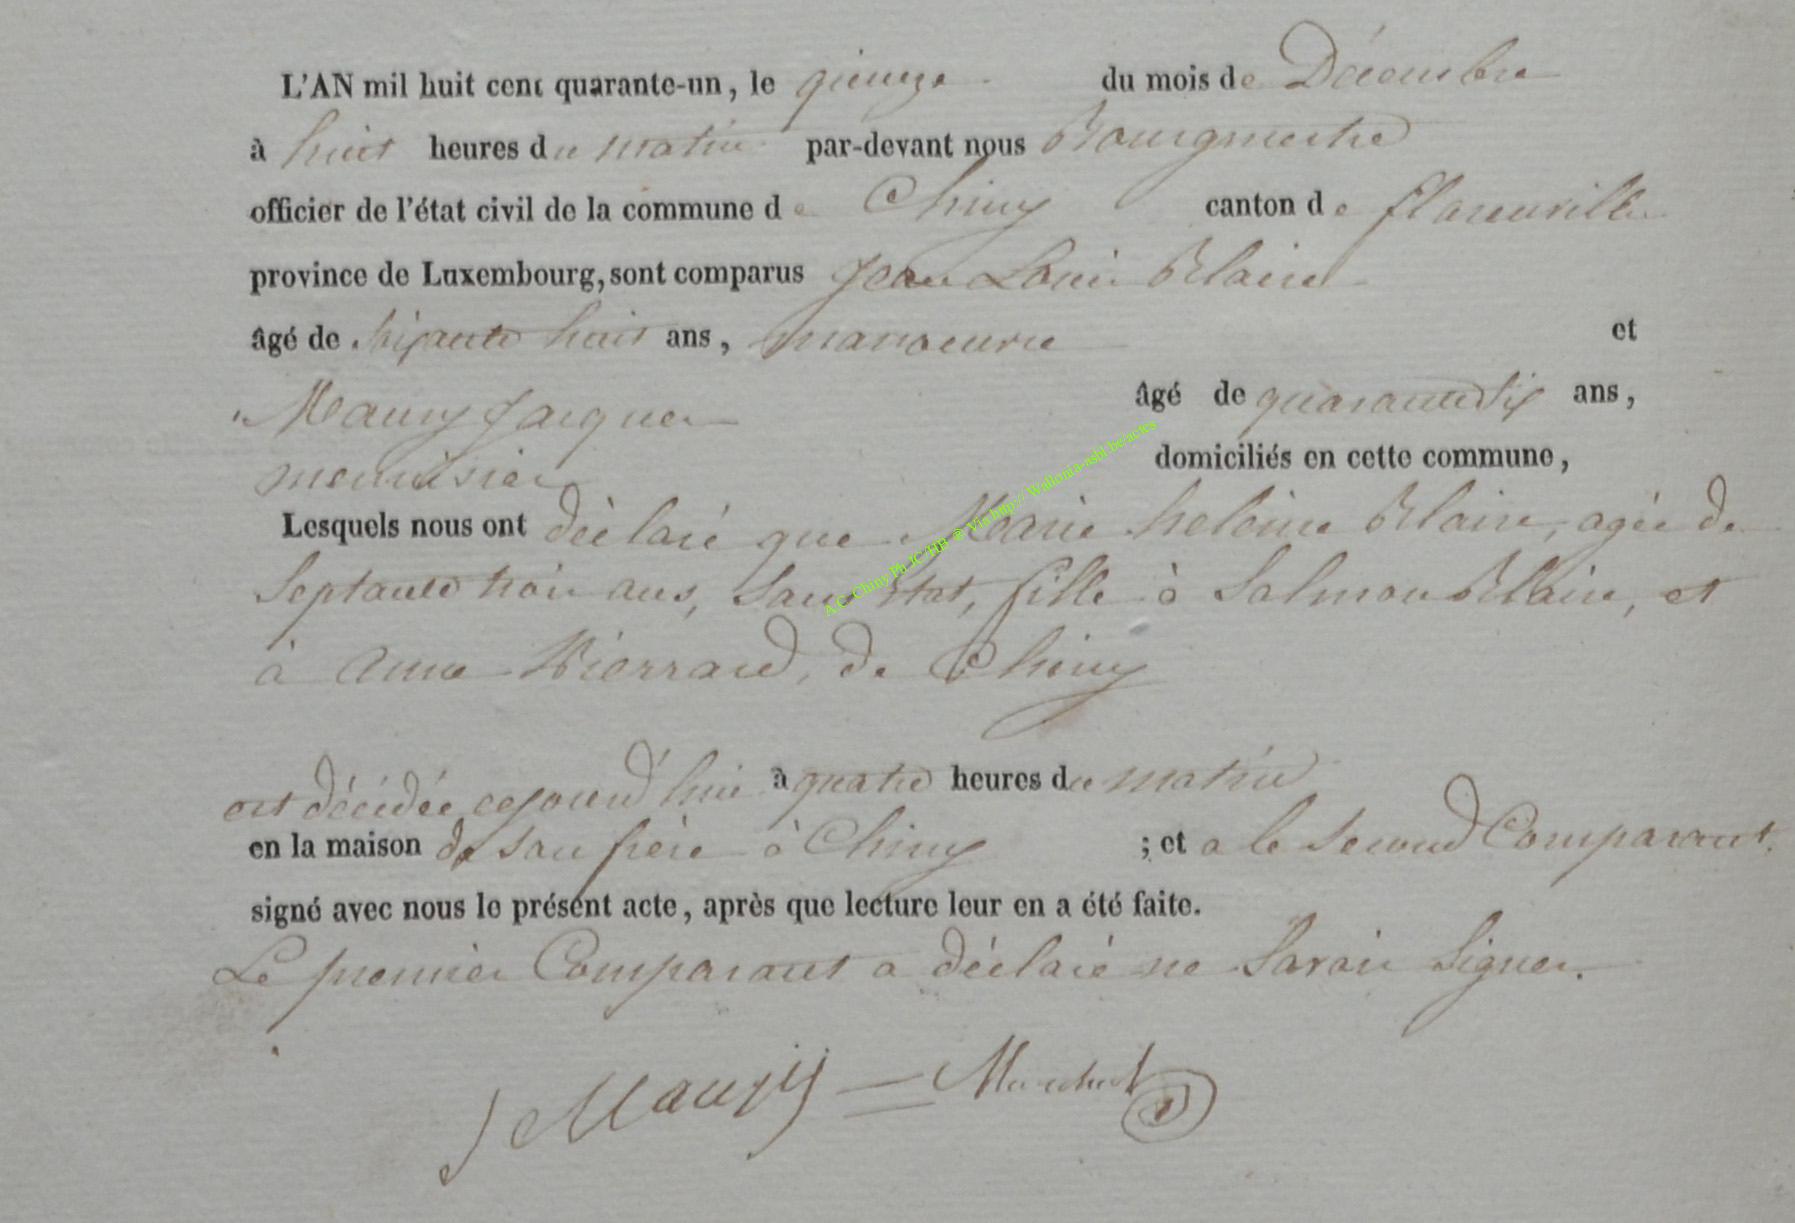 L'AN mil huit cent quarante-un, le quinze du mois de Décembre
à huit heures du matin par-devant nous Bourgmestre
officier de l'état civil de la commune de Chiny canton de florenville
province de Luxembourg, sont comparus Jean Louis Blaise
âgé de soixante huit ans, manoeuvre et
Maury Jacques âgé de quarante six ans,
menuisier domiciliés en cette commune,
Lesquels nous ont déclaré que Marie heleine Blaise, agée de
Septante trois ans, Sans Etat, fille à Salmon Blaise, et
à Anne Pierrard, de Chiny
est décédée cejourd'hui à quatre heures du matin
en la maison de son frère à Chiny ; et a le second Comparant,
signé avec nous le présent acte, après que lecture leur en a été faite.
Le premier Comparant a déclaré ne Savoir Signer.
J Maury
A.C. Chiny Ph JC HB @ Via http:// Wallonia-asbl.be/actes